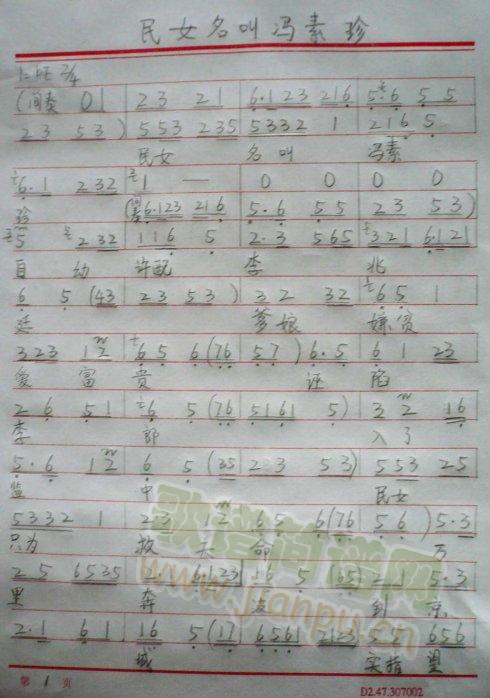 民女名叫冯素珍
1=bE 2/4
(间奏 0 1 2 3 2 1 6·1 2 3 2 1 6 5·6 5 5
2 3 5 3 ) 5 5 3 2 3 5 5 3 3 2 1 2 1 6 5
民女 名叫 冯素
6·1 2 3 2 1 — 0 0 0 0
珍 (间奏 6·1 2 3 2 1 6 5·6 5 5 2 3 5 3 )
5 2 3 2 1 1 6 5 2·3 5 6 5 3 2 1 6·1 2 1
自幼 许配 李 兆
6 5 (4 3 2 3 5 3 ) 3 2 3 2 6 5 1
廷 爹娘 嫌贫
3 2 3 1 2 6 5 6 (7 6 5 7 ) 6·5 6 1 2 3
爱富 贵 诬陷
2 6 5 1 6 5 (7 6 5 1 6 1 5 ) 3 2 1 6
李 郎 入了
5·6 1 2 6 5 (3 5 2 3 5 3 ) 5 5 3 2 5
监 中 民女
5 3 3 2 1 2 3 1 2 6 5 6 (7 6 5 6 ) 5·3
只为 救夫 命 万
2 5 6 5 3 5 2· 6·1 2 3 1 6 5 (6 5 2 1 5·3
里 奔 波 到 京
2·1 6 1 1 6 5 (1 7 6 5 6 1 2 1 2 3 5 5 6 5 6
城 实指望
歌谱简谱网
www.jianpu.cn
第 1 页
D2.47.307002